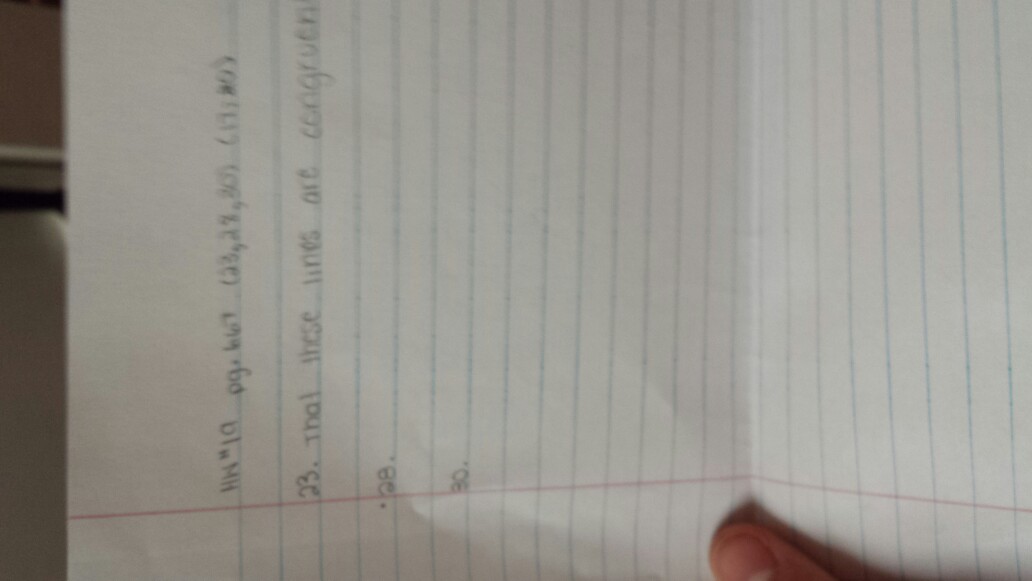 HW#1a pg. 667 (23,28,30) (17,20)
23. That these lines are congruent
28.
30.